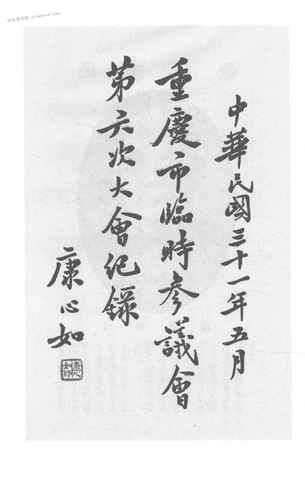 中華民國三十一年五月
重慶市臨時參議會
第六次大會紀錄
康心如